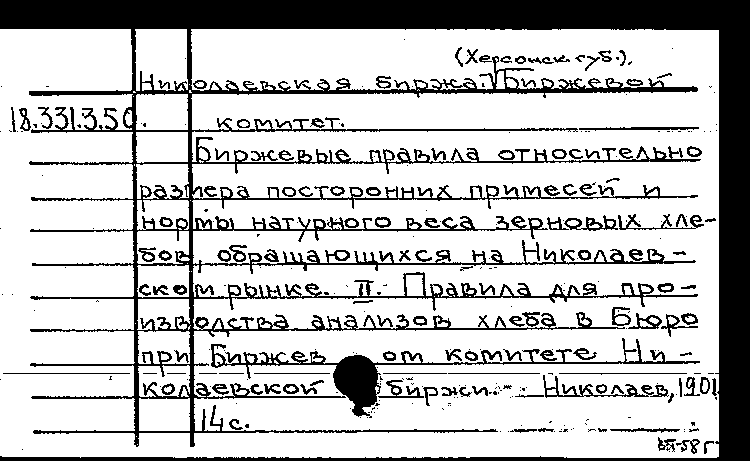 (Херсонск. губ.).
Николаевская биржа. Биржевой
18.331.3.50.
комитет.
Биржевые правила относительно
размера посторонних примесей и
нормы натурного веса зерновых хле-
бов, обращающихся на Николаев-
ском рынке. II. Правила для про-
изводства анализов хлеба в Бюро
при Биржев ом комитете Ни-
колаевской биржи.- Николаев, 1901
14 с.